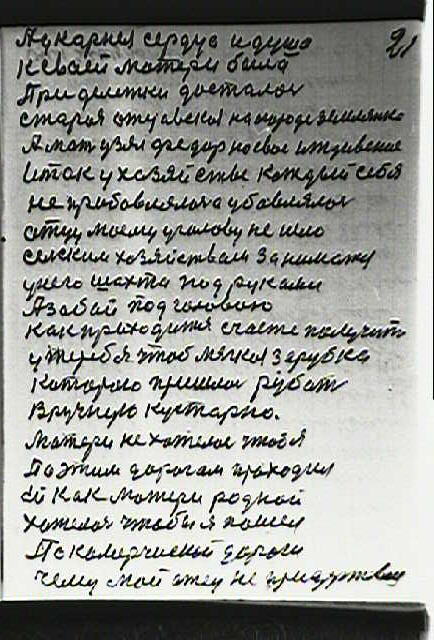 А у карнея сердце и душа 21
к своей матери была
При дележки досталос
старая отцовская на пароде землянка
А мат узял федор на свое иждевение
И так у хозяйстве каждый себя
не прибовлялся а убавлялся
отцу моему у голову не шло
селским хозяйствам заниматся
у него шахта под руками
А забой под головою
как приходится счасте получит
у жеребя чтоб мяхкая зарубка
которою пришлос рубат
вручную кустарно.
матери не хотелос чтоб я
По этим дорогам проходил
ей как матери родной
хотелос чтобы я пошел
По комерческой дороги
чему мой отец не придержив